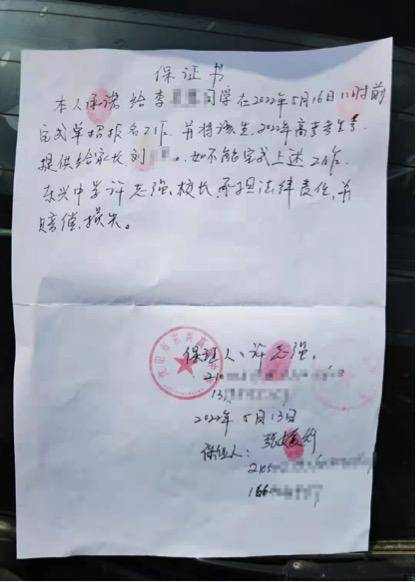 保证书
本人承诺给李 同学在2022年5月16日11时前
完成单招报名工作,并将该生2022年高考考生号
提供给家长刘 。如不能完成上述工作,
东兴中学许志强校长承担法律责任,并
赔偿损失。
保证人:许志强。
210
13
2022年5月13日
保证人:
210
166